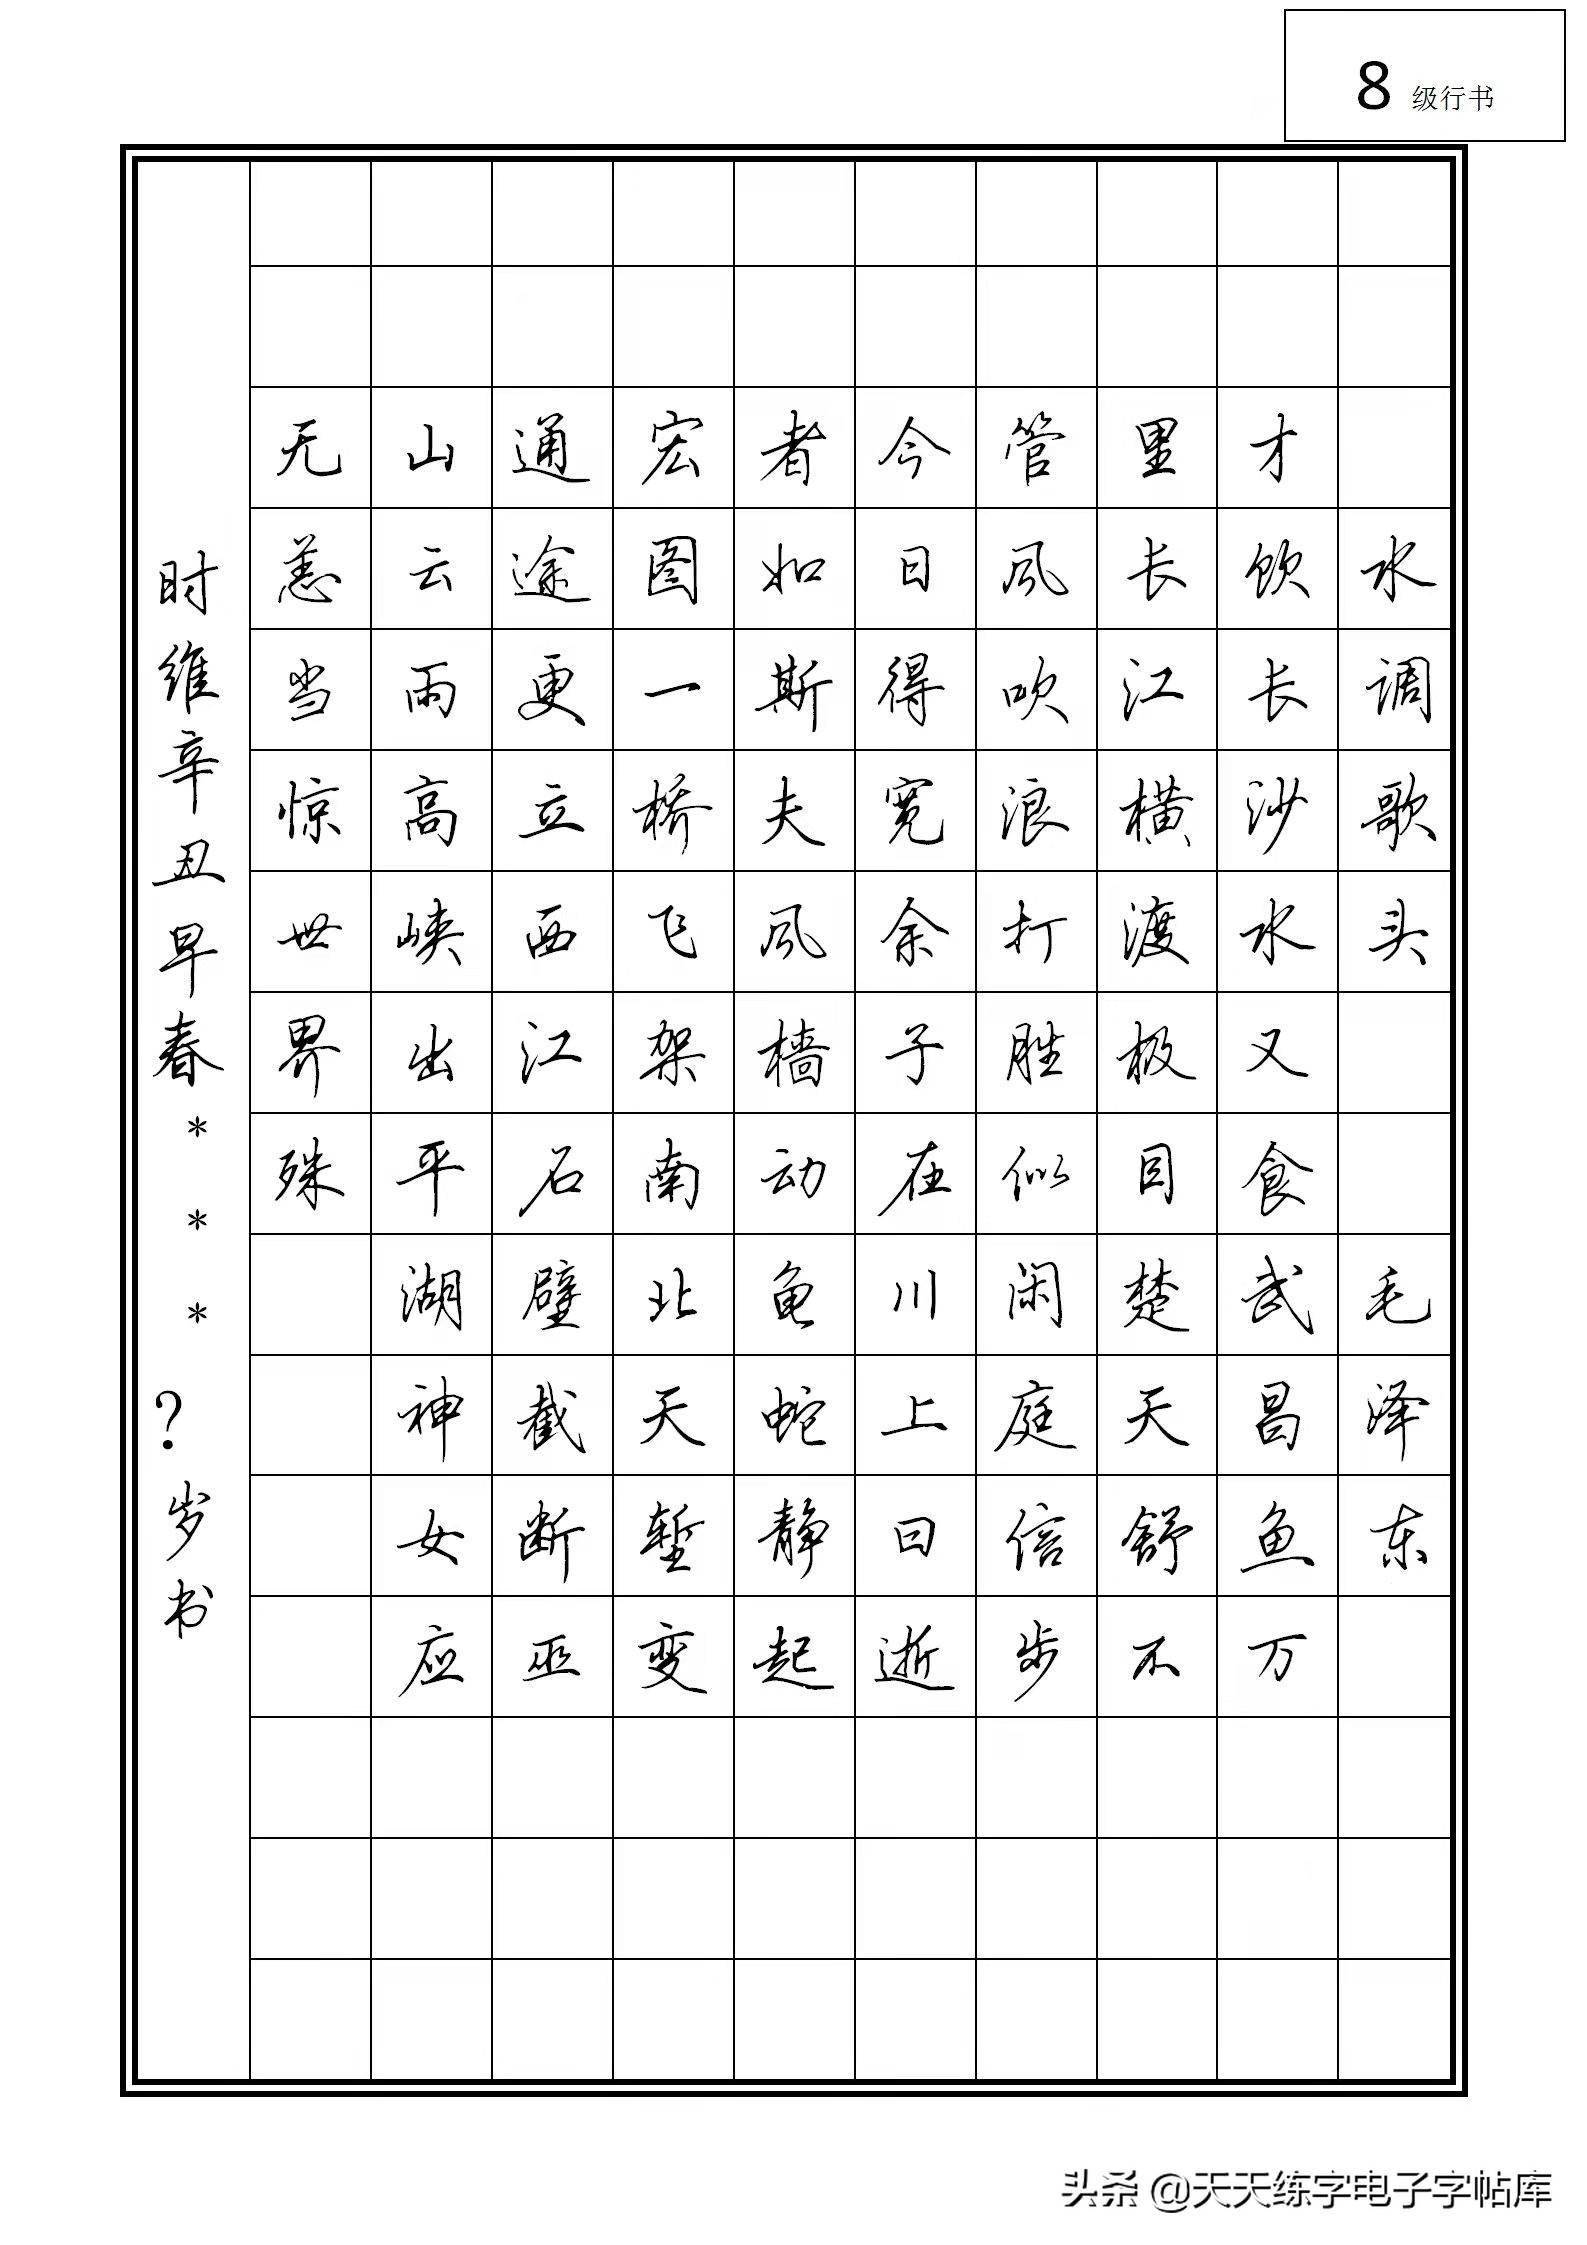 8 级行书
水调歌头 毛泽东
才饮长沙水又食武昌鱼万
里长江横渡极目楚天舒不
管风吹浪打胜似闲庭信步
今日得宽余子在川上曰逝
者如斯夫风樯动龟蛇静起
宏图一桥飞架南北天堑变
通途更立西江石壁截断巫
山云雨高峡出平湖神女应
无恙当惊世界殊
时维辛丑早春***?岁书
头条 @天天练字电子字帖库